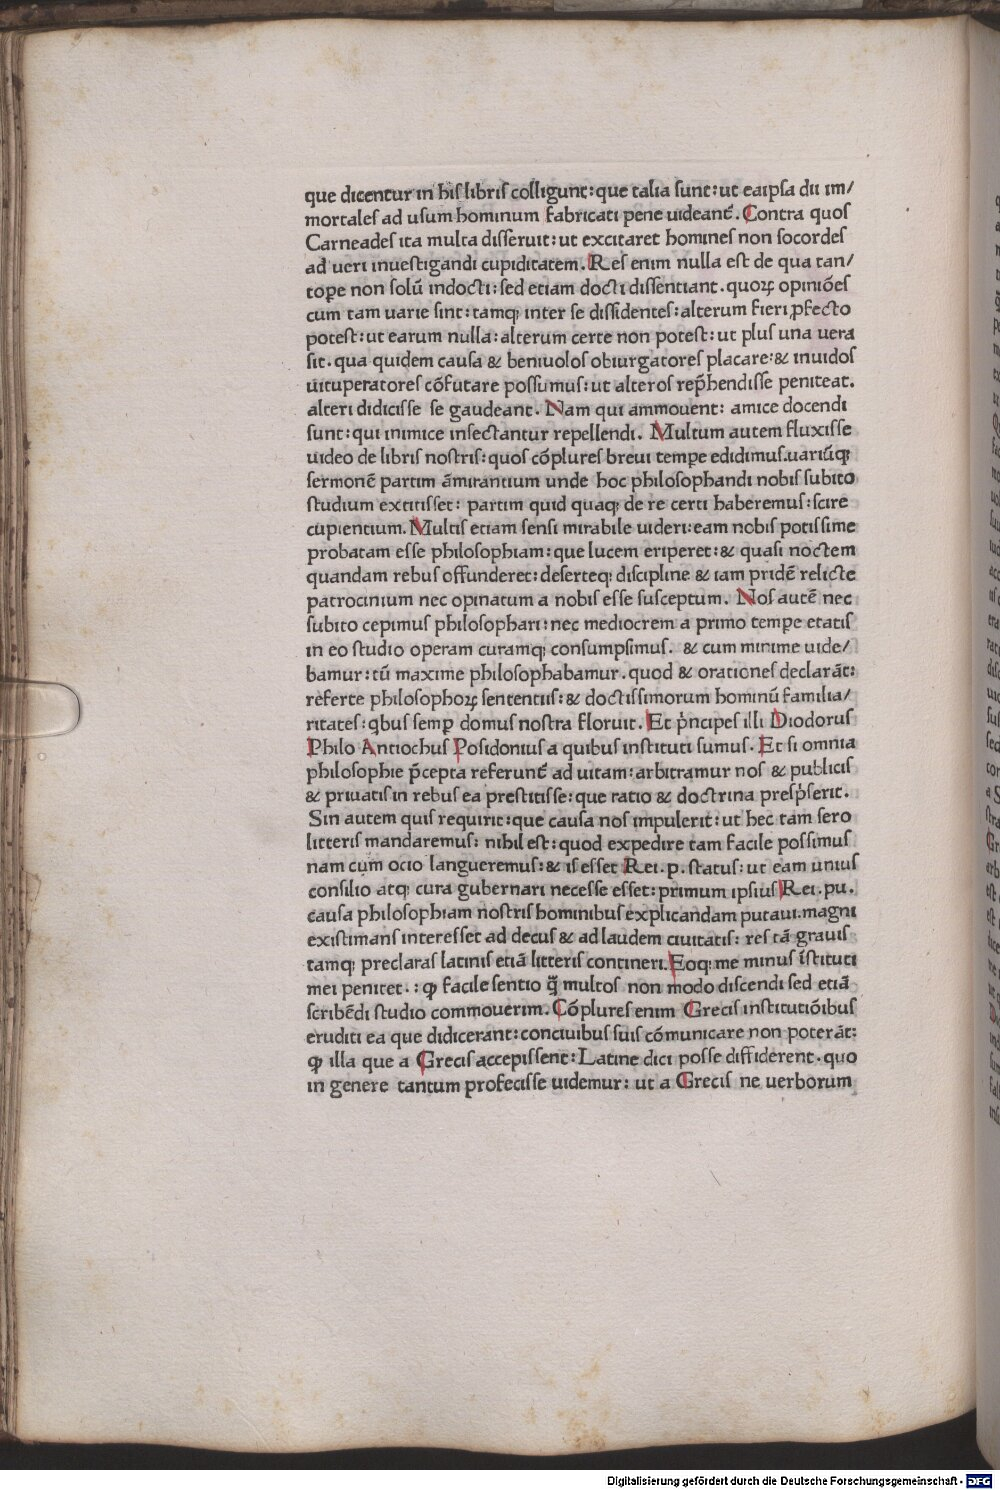 que dicentur in hiſ libriſ colligunt: que talia ſunt: ut eaipſa dii im/
mortaleſ ad uſum hominum fabricati pene uideant̃. Contra quoſ
Carneadeſ ita multa diſſeruit: ut excitaret homineſ non ſocordeſ
ad ueri inueſtigandi cupiditatem. Reſ enim nulla eſt de qua tan/
toꝑe non ſolũ indocti: ſed etiam docti diſſentiant. quoꝝ opiniõeſ
cum tam uarie ſint: tamq; inter ſe diſſidenteſ: alterum fieri ꝓfecto
poteſt: ut earum nulla: alterum certe non poteſt: ut pluſ una uera
ſit. qua quidem cauſa & beniuoloſ obiurgatoreſ placare: & inuidoſ
uituperatoreſ cõfutare poſſumuſ: ut alteroſ rep̃hendiſſe peniteat.
alteri didiciſſe ſe gaudeant. Nam qui ammouent: amice docendi
ſunt: qui inimice inſectantur repellendi. Multum autem fluxiſſe
uideo de libriſ noſtriſ: quoſ cõplureſ breui temꝑe edidimuſ. uariũq;
ſermonẽ partim ãmirantium unde hoc philoſophandi nobiſ ſubito
ſtudium extitiſſet: partim quid quaq; de re certi haberemuſ: ſcire
cupientium. Multiſ etiam ſenſi mirabile uideri: eam nobiſ potiſſime
probatam eſſe philoſophiam: que lucem eriperet: & quaſi noctem
quandam rebuſ offunderet: deſerteq; diſcipline & iam pridẽ relicte
patrocinium nec opinatum a nobiſ eſſe ſuſceptum. Noſ autẽ nec
ſubito cepimuſ philoſophari: nec mediocrem a primo temꝑe etatiſ
in eo ſtudio operam curamq; conſumpſimuſ. & cum minime uide/
bamur: tũ maxime philoſophabamur. quod & orationeſ declarãt:
referte philoſophoꝝ ſententiiſ: & doctiſſimorum hominũ familia/
ritateſ: qbuſ ſemꝑ domuſ noſtra floruit. Et p̍ncipeſ illi Diodoruſ
Philo Antiochuſ Poſidoniuſ a quibuſ inſtituti ſumuſ. Et ſi omnia
philoſophie p̃cepta referunt̃ ad uitam: arbitramur noſ & publiciſ
& priuatiſ in rebuſ ea preſtitiſſe: que ratio & doctrina preſp̍ſerit.
Sin autem quiſ requirit: que cauſa noſ impulerit: ut hec tam ſero
litteriſ mandaremuſ: nihil eſt: quod expedire tam facile poſſimuſ
nam cum ocio langueremuſ: & iſ eſſet Rei. p. ſtatuſ: ut eam uniuſ
conſilio atq; cura gubernari neceſſe eſſet: primum ipſiuſ Rei. pu.
cauſa philoſophiam noſtriſ hominibuſ explicandam putaui. magni
exiſtimanſ intereſſet ad decuſ & ad laudem ciuitatiſ: reſ tã grauiſ
tamq; preclaraſ latiniſ etiã litteriſ contineri. Eoq; me minuſ ĩſtituti
mei penitet. : ꝙ facile ſentio q̃ multoſ non modo diſcendi ſed etiã
ſcribẽdi ſtudio commouerim. Cõplureſ enim Greciſ inſtitutiõibuſ
eruditi ea que didicerant: conciuibuſ ſuiſ cõmunicare non poterãt:
ꝙ illa que a Greciſ accepiſſent: Latine dici poſſe diffiderent. quo
in genere tantum profeciſſe uidemur: ut a Greciſ ne uerborum
Digitalisierung gefördert durch die Deutsche Forschungsgemeinschaft - DFG